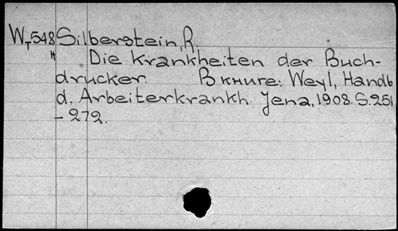 W 548 Silberstein, R.
Die Krankheiten der Buch-
drucker. В книге: Weyl, Handb
d. Arbeiterkrankh. Jena, 1908. S. 251
- 272.